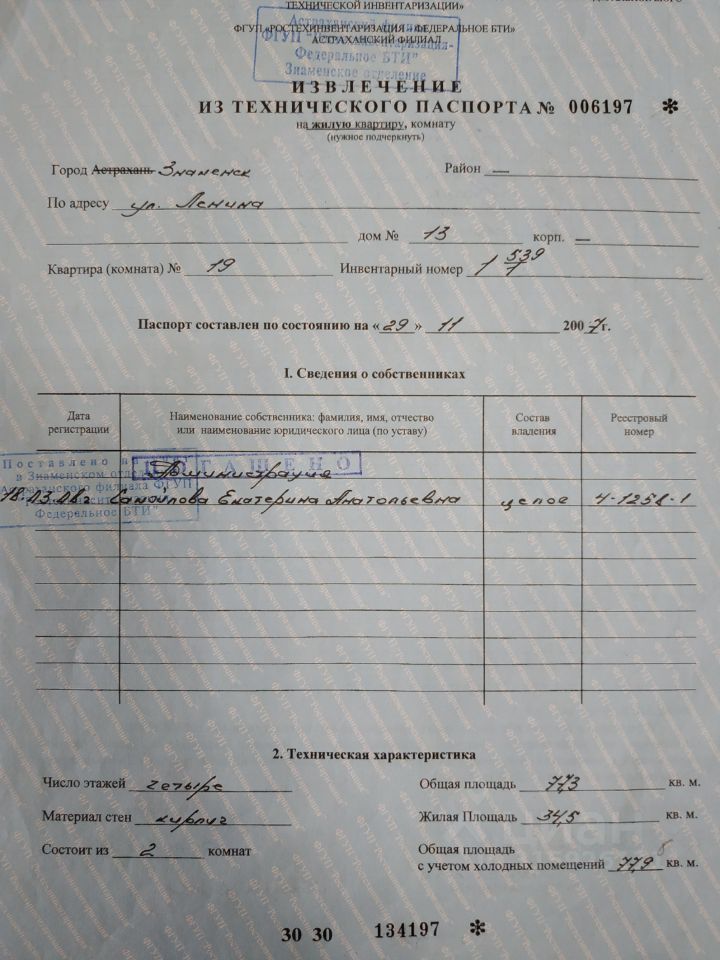 ТЕХНИЧЕСКОЙ ИНВЕНТАРИЗАЦИИ»
ФГУП «РОСТЕХИНВЕНТАРИЗАЦИЯ - ФЕДЕРАЛЬНОЕ БТИ»
АСТРАХАНСКИЙ ФИЛИАЛ
Астраханский филиал
ФГУП
Федеральное БТИ"
Знаменское отделение
ИЗВЛЕЧЕНИЕ
ИЗ ТЕХНИЧЕСКОГО ПАСПОРТА № 006197 *
на жилую квартиру, комнату
(нужное подчеркнуть)
Город Астрахань Знаменск Район —
По адресу ул. Ленина
дом № 13 корп. —
Квартира (комната) № 19 Инвентарный номер 1 539/1
Паспорт составлен по состоянию на «29» 11 2007г.
1. Сведения о собственниках
Дата регистрации
Наименование собственника: фамилия, имя, отчество
или наименование юридического лица (по уставу)
Состав владения
Реестровый номер
Поставлено на
в Знаменском отдел
Астраханского филиала ФГУП
Федеральное БТИ"
ПОГАШЕНО
Администрация
18.03.08г Самойлова Екатерина Анатольевна целое 4-1258-1
2. Техническая характеристика
Число этажей четыре Общая площадь 77,3 кв. м.
Материал стен кирпич Жилая Площадь 34,5 кв. м.
Состоит из 2 комнат Общая площадь
с учетом холодных помещений 77,9 кв. м.
30 30 134197 *